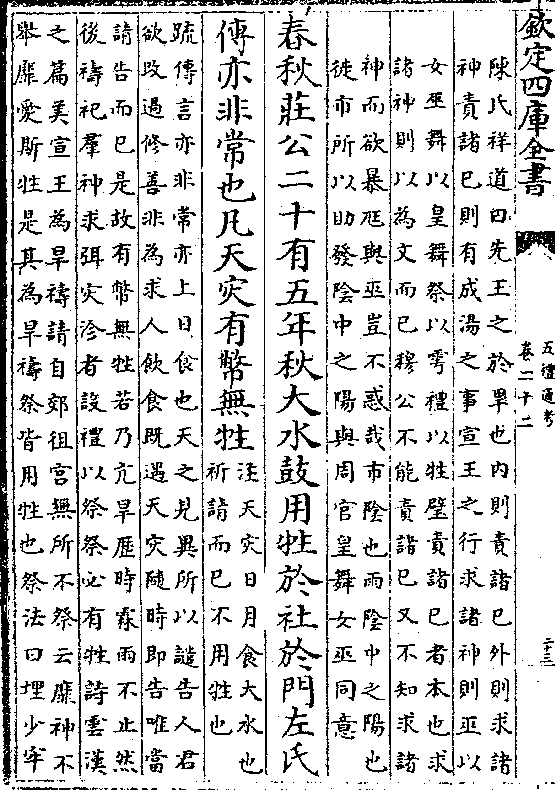 欽定四庫全書
五禮通考
卷二十二
二十三
陳氏祥道曰先王之於旱也内則責諸已外則求諸
神責諸已則有成湯之事宣王之行求諸神則巫以
女巫舞以皇舞祭以雩禮以牲璧責諸已者本也求
諸神則以為文而已穆公不能責諸已又不知求諸
神而欲暴尫與巫豈不惑哉市陰也雨陰中之陽也
徙市所以助發陰中之陽與周官皇舞女巫同意
春秋莊公二十有五年秋大水鼓用牲於社於門左氏
傳亦非常也凡天灾有幣無牲
注天灾日月食大水也
祈請而已不用牲也
疏傳言亦非常亦上日食也天之見異所以譴告人君
欲改過修善非為求人飲食既遇天灾隨時即告唯當
請告而已是故有幣無牲若乃亢旱歴時霖雨不止然
後禱祀羣神求弭灾沴者設禮以祭祭必有牲詩雲漢
之篇美宣王為旱禱請自郊徂宫無所不祭云靡神不
舉靡愛斯牲是其為旱禱祭皆用牲也祭法曰埋少牢